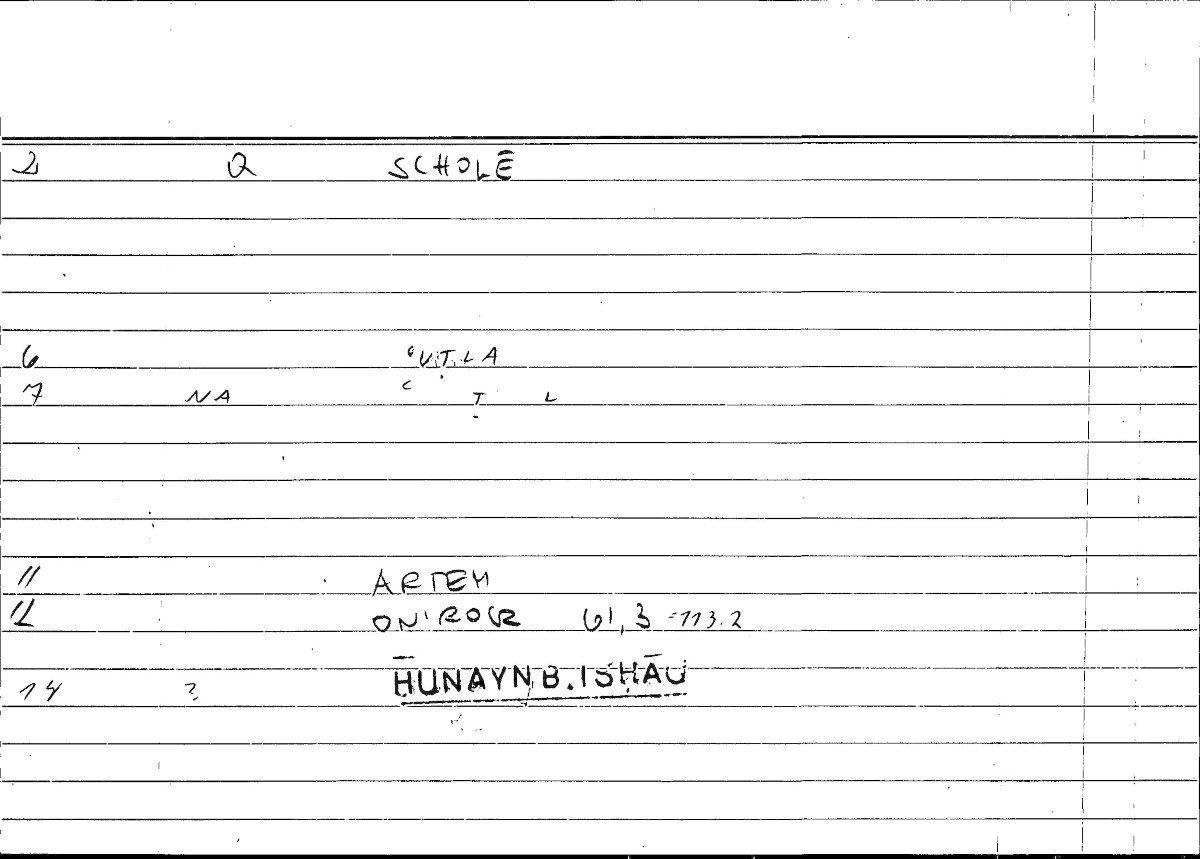 2 Q SCHOLĒ
6 ʿUṬLA
7 NA ʿ Ṭ L
11 ARTEM
12 ONIROCR 61,3 -113.2
14 ? ḤUNAYN B. ISḤĀQ